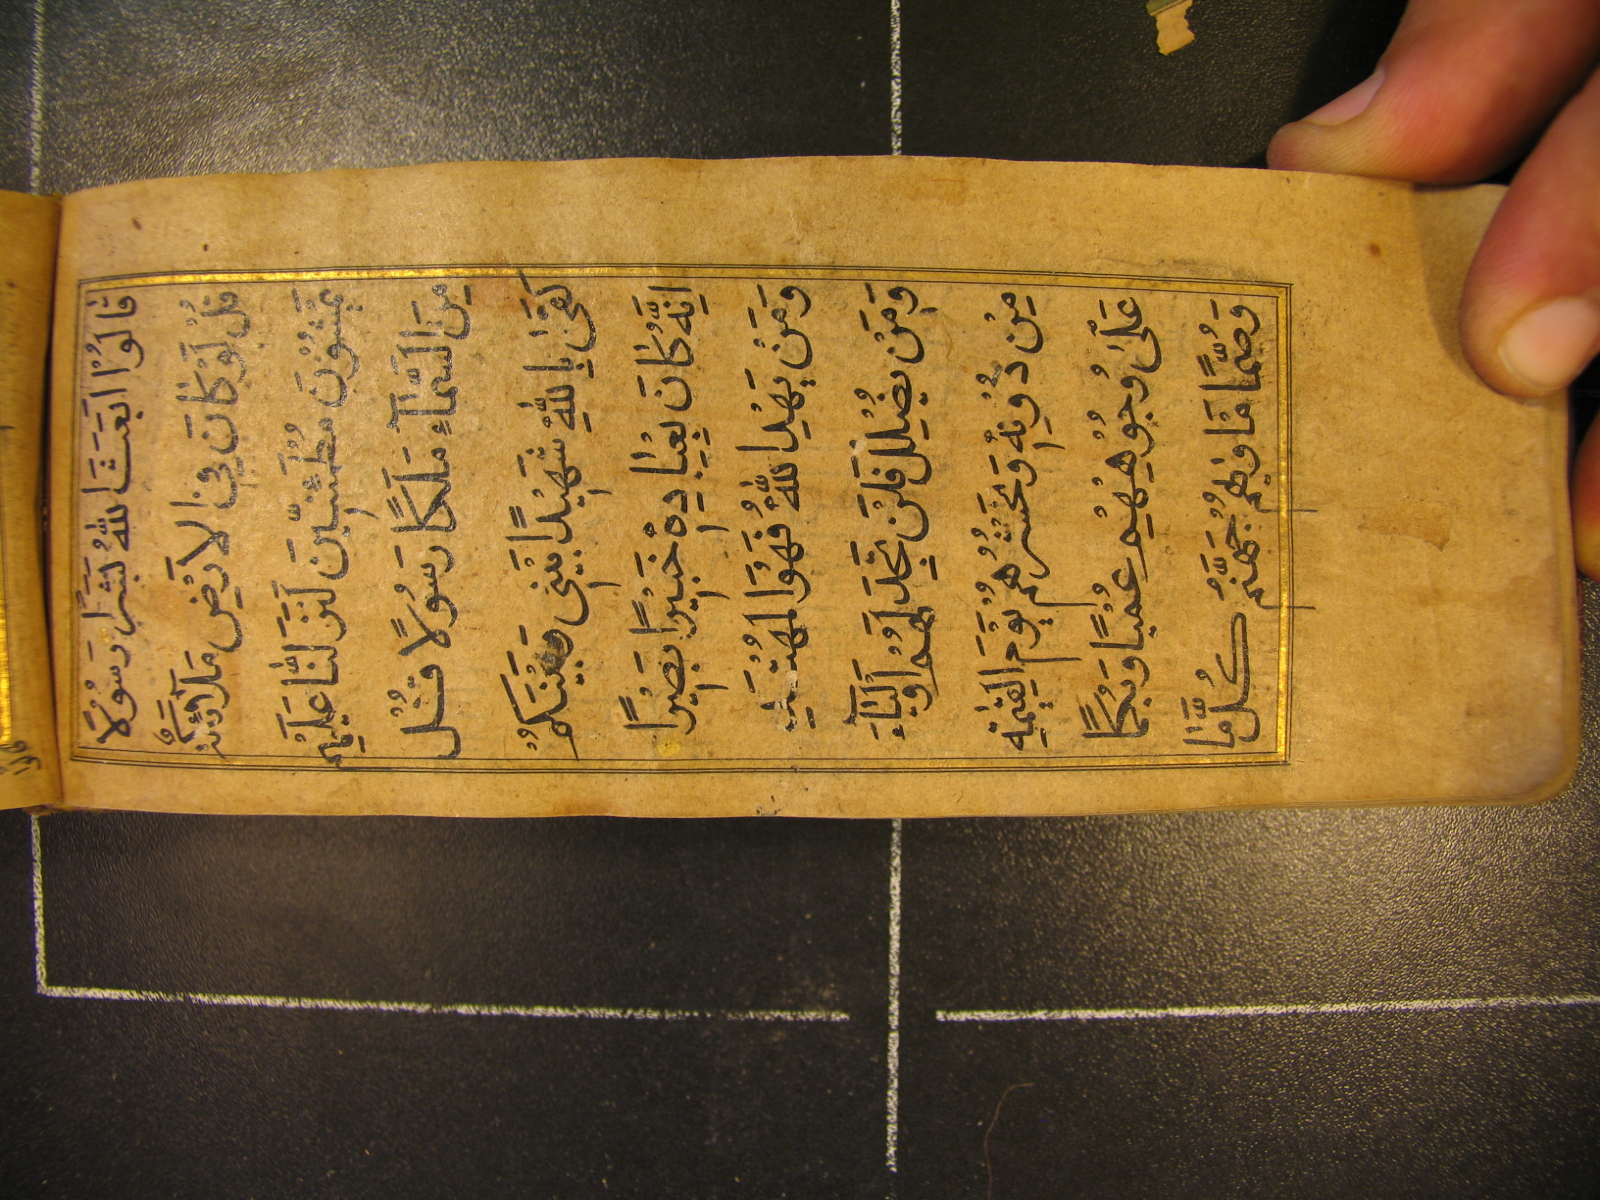 قَالُوْا اَبَعَثَ اللّٰهُ بَشَرًا رَسُوْلًا
قُلْ لَوْ كَانَ فِى الْاَرْضِ مَلٰٓئِكَةٌ
يَمْشُوْنَ مُطْمَئِنِّيْنَ لَنَزَّلْنَا عَلَيْهِمْ
مِنَ السَّمَآءِ مَلَكًا رَسُوْلًا قُلْ
كَفٰى بِاللّٰهِ شَهِيْدًا بَيْنِىْ وَبَيْنَكُمْ
اِنَّهٗ كَانَ بِعِبَادِهٖ خَبِيْرًا بَصِيْرًا
وَمَنْ يَهْدِ اللّٰهُ فَهُوَ الْمُهْتَدِ
وَمَنْ يُضْلِلْ فَلَنْ تَجِدَ لَهُمْ اَوْلِيَآءَ
مِنْ دُوْنِهٖ وَنَحْشُرُهُمْ يَوْمَ الْقِيٰمَةِ
عَلٰى وُجُوْهِهِمْ عُمْيًا وَبُكْمًا
وَصُمًّا مَاْوٰىهُمْ جَهَنَّمُ كُلَّمَا